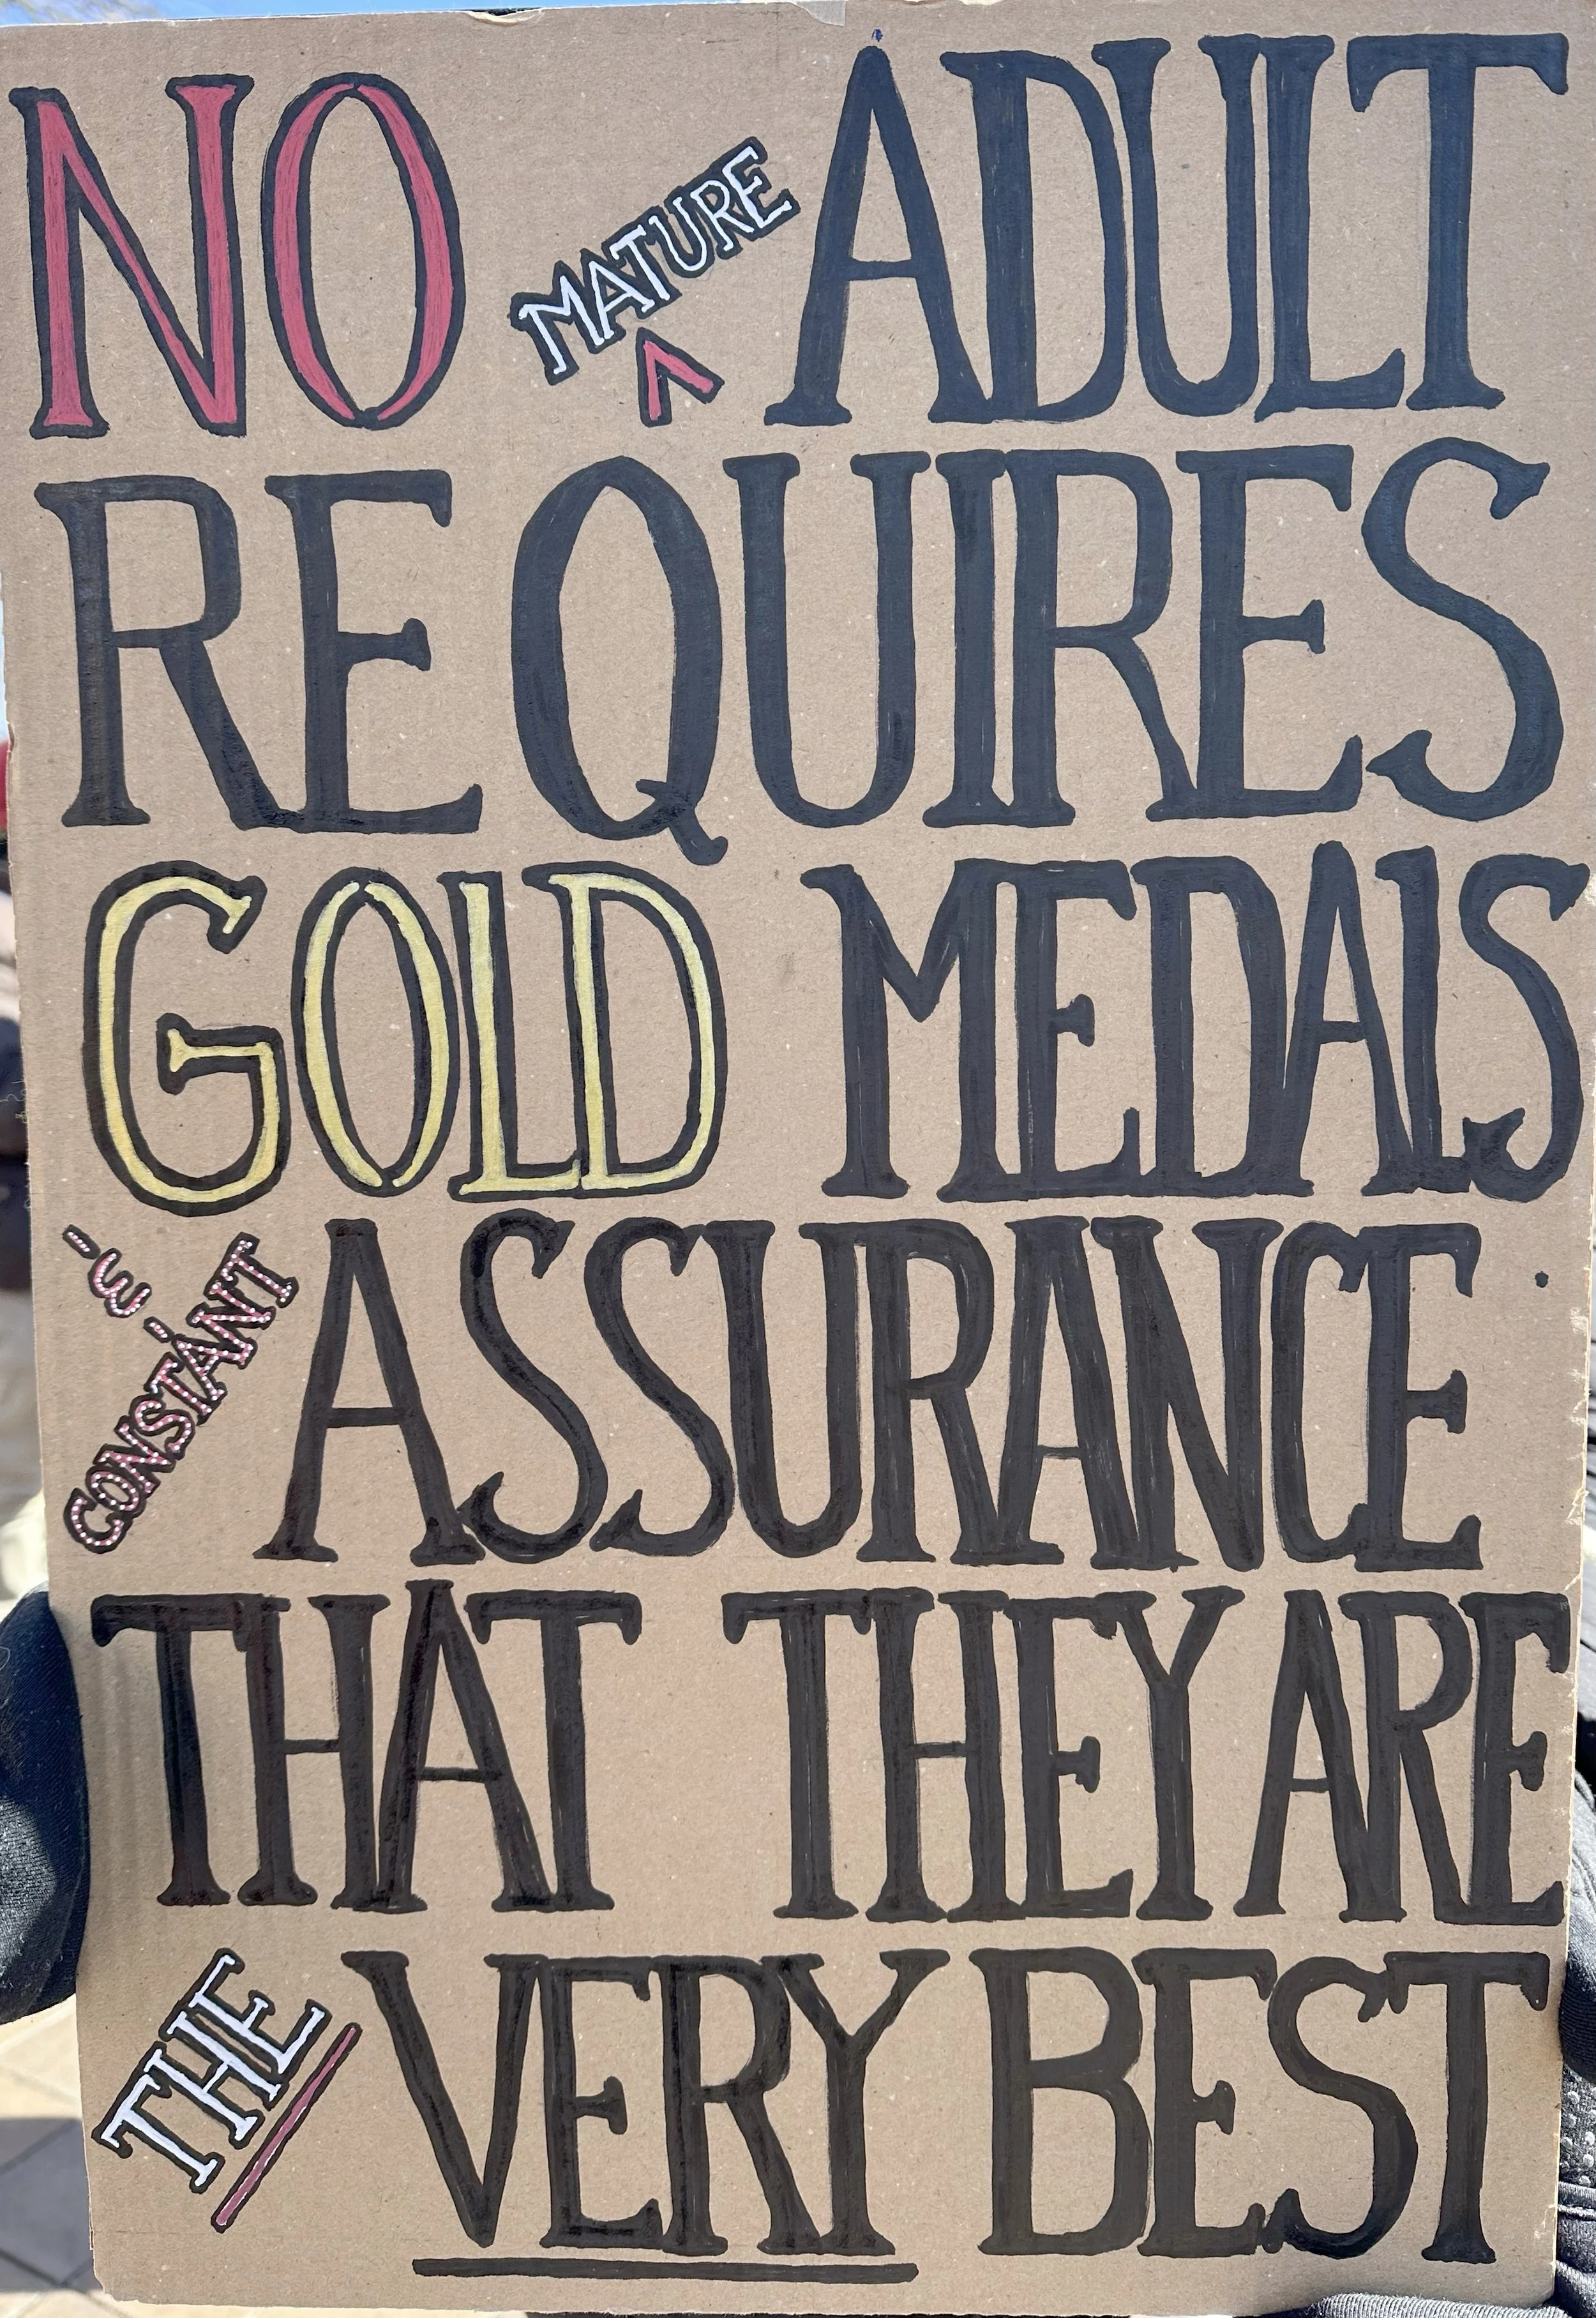 NO MATURE ADULT
REQUIRES
GOLD MEDALS
& CONSTANT ASSURANCE
THAT THEY ARE
THE VERY BEST